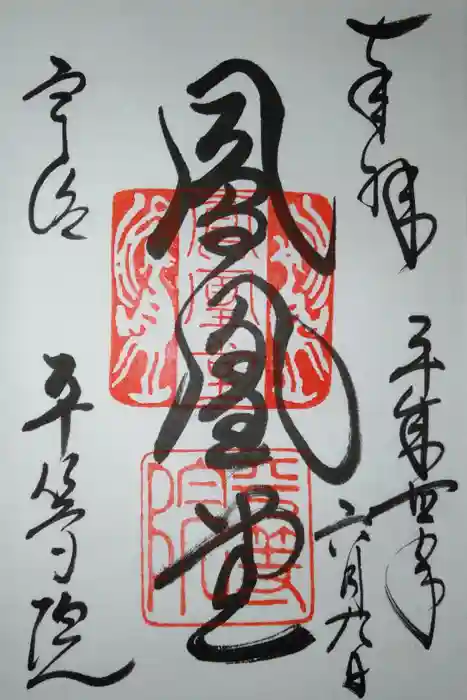 奉拝
平成 年
六月九日
鳳凰堂
鳳凰堂
平等院
宇治
平等院